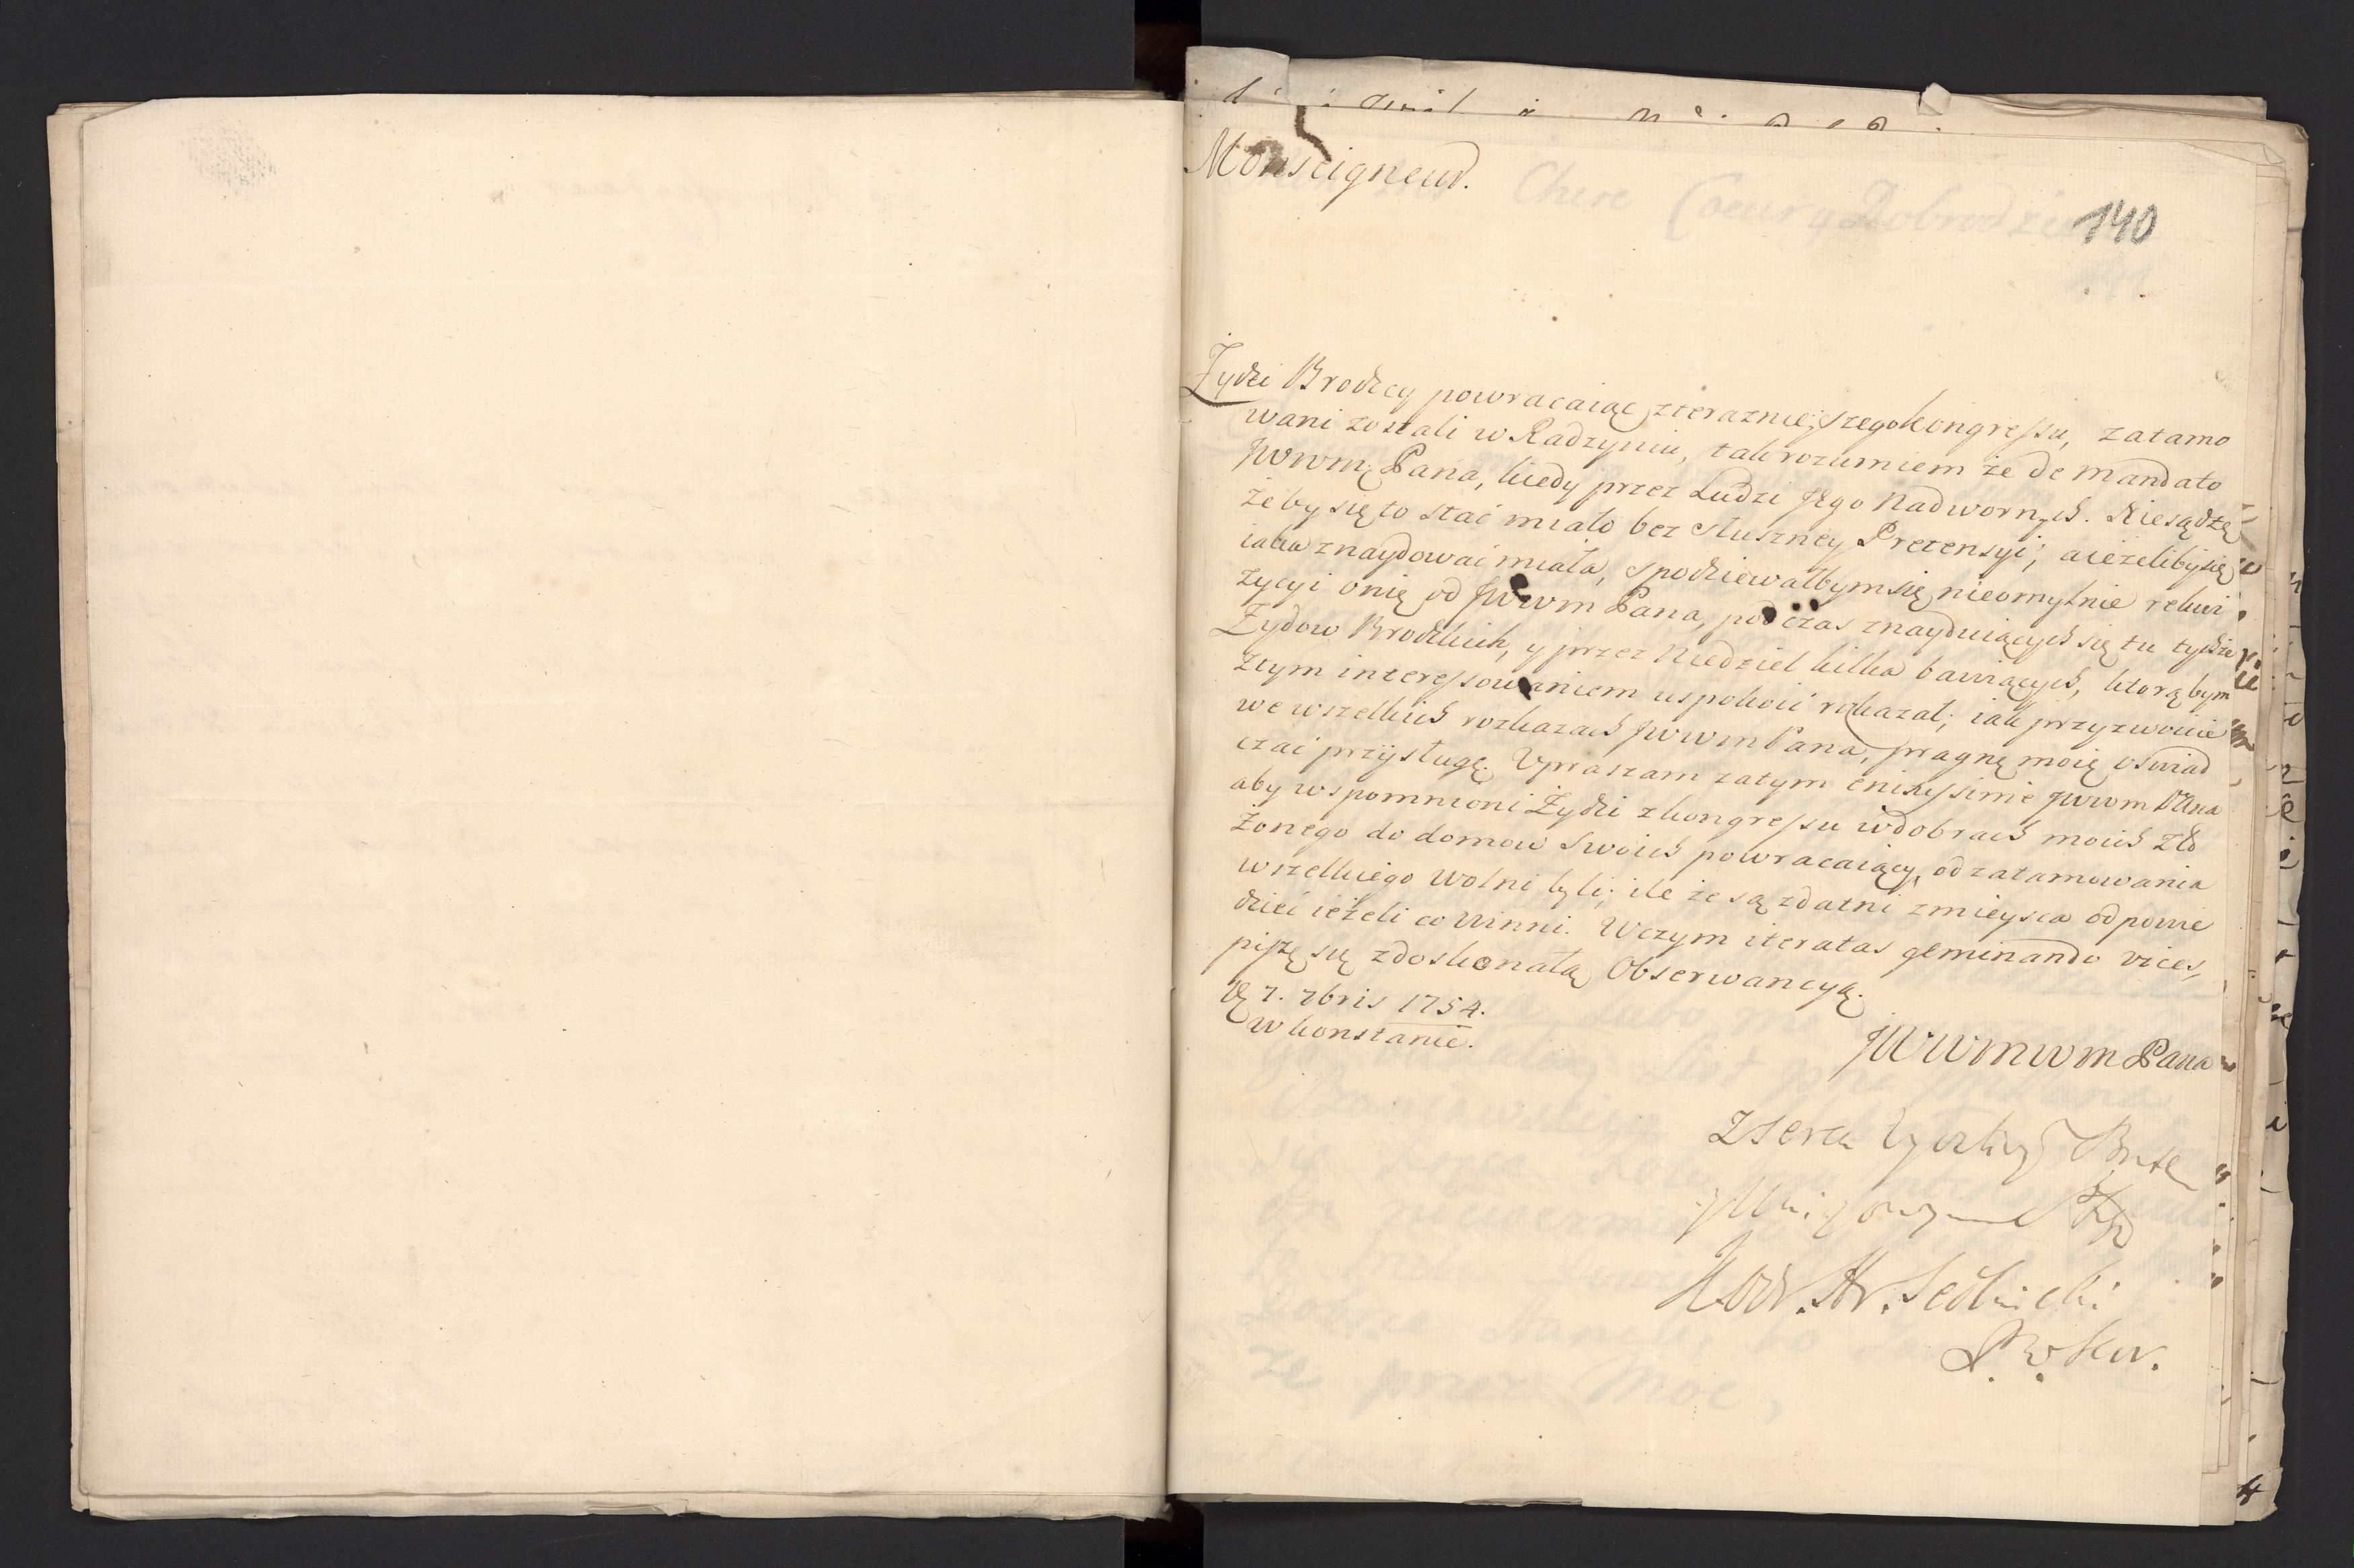 Monseigneur.
140
Żydzi Brodzcy powracaiąc zteraznieyszego kongressu, zatamo
wani zostali w Radzyniu, tak rozumiem że de mandato
JWWM Pana, kiedy przez Ludzi Jego Nadwornych. Niesądzę
żeby się to stać miało bez słuszney Pretensyi; aieżeliby się
iaka znaydować miała, spodziewałbym się nieomylnie rekwi
zycyi onię od JWWM Pana, podczas znayduiących się tu tychże
Żydow Brodzkich, y przez Niedziel kilka bawiących, ktorą bym
ztym interessowaniem uspokoić rozkazał; iak przyzwoicie
we wszelkich rozkazach JWWM Pana, pragnę moię oswiad
czać przysługę. Upraszam zatym enixissime JWWM Pana
aby wspomnioni Żydzi z kongressu wdobrach moich zło
żonego do domow swoich powracaiący, od zatamowania
wszelkiego wolni byli; ile że są zdatni zmieysca odpowie
dzieć ieżeli co winni. Wczym iteratas geminando vices,
piszę się zdoskonałą Obserwancyą.
7. 7bris 1754.
w konstanie.
JWWMWM Pana
zserca
Sedlnicki
P. W. Kor.